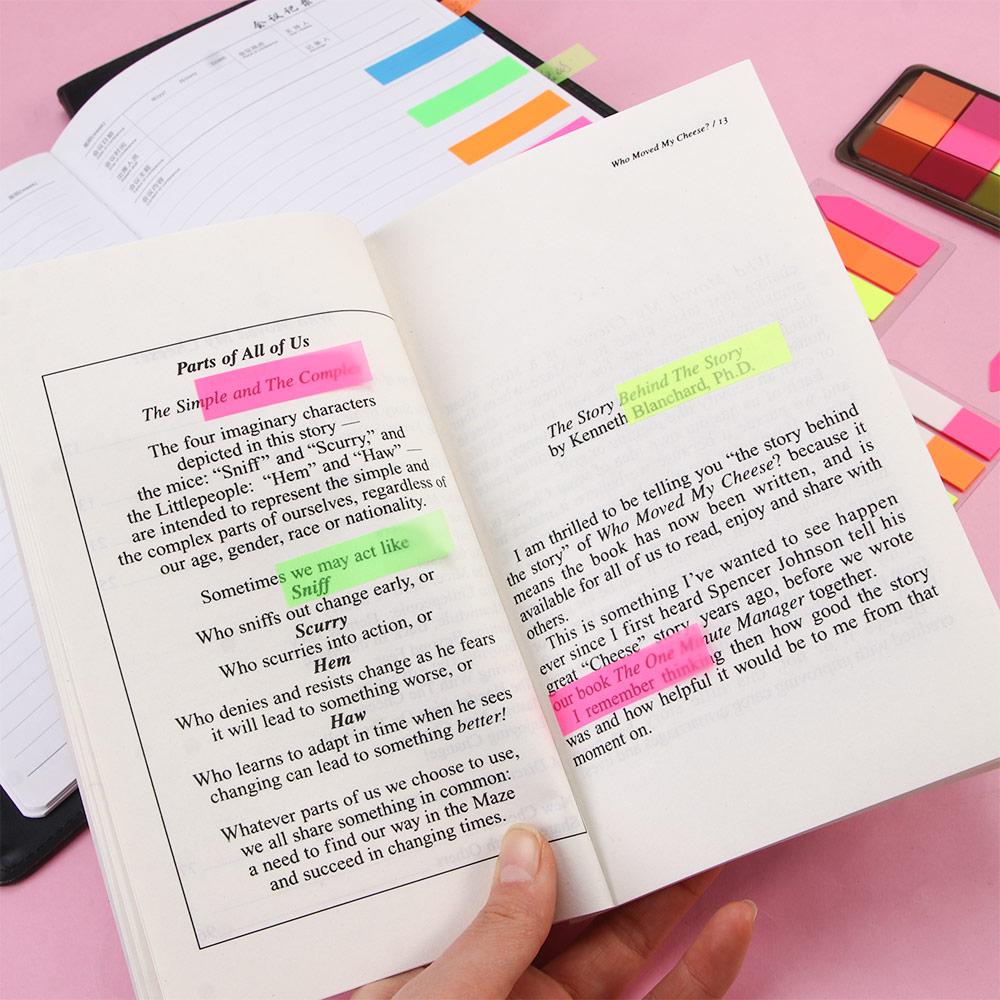 会议记录
主持人
记录人
Who Moved My Cheese? / 13
Parts of All of Us
The Simple and The Complex
The four imaginary characters
depicted in this story —
the mice: “Sniff” and “Scurry,” and
the Littlepeople: “Hem” and “Haw” —
are intended to represent the simple and
the complex parts of ourselves, regardless of
our age, gender, race or nationality.
Sometimes we may act like
Sniff
Who sniffs out change early, or
Scurry
Who scurries into action, or
Hem
Who denies and resists change as he fears
it will lead to something worse, or
Haw
Who learns to adapt in time when he sees
changing can lead to something better!
Whatever parts of us we choose to use,
we all share something in common:
a need to find our way in the Maze
and succeed in changing times.
The Story Behind The Story
by Kenneth Blanchard, Ph.D.
I am thrilled to be telling you “the story behind
the story” of Who Moved My Cheese? because it
means the book has now been written, and is
available for all of us to read, enjoy and share with
others.
This is something I’ve wanted to see happen
ever since I first heard Spencer Johnson tell his
great “Cheese” story, years ago, before we wrote
our book The One Minute Manager together.
I remember thinking then how good the story
was and how helpful it would be to me from that
moment on.